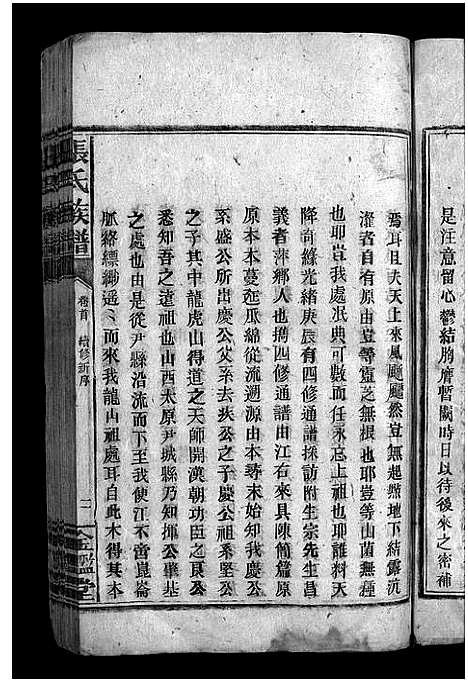 是注意留心鬱結胸膺暫闕時日以待後來之密補
焉耳且夫天上來風飈飈然豈無起點地下結露沉
濳者自有原由豈等靈芝無根也耶豈等山菌無種
也耶豈我處冺典可數而任永忘上祖也耶誰料天
降奇緣光緒庚辰有四修通譜採訪附生宗先生昌
義者萍鄉人也携四修通譜由江右來具陳簡篇原
原本本蔓延瓜綿從流遡源由本尋末始知我慶公
系盛公所出慶公父系去疾公之子慶公祖系堅公
之子其中龍虎山得道之天師開漢朝功臣之良公
悉知吾之遠祖也山西太原尹城縣乃知揮公肇基
之處也由是從尹縣沿流而下至我使江不啻崑崙
脈絡縹緲遥遥而來我龍山祖處耳自此木得其本
張氏族譜
卷首 續修新序
二
金鑑堂